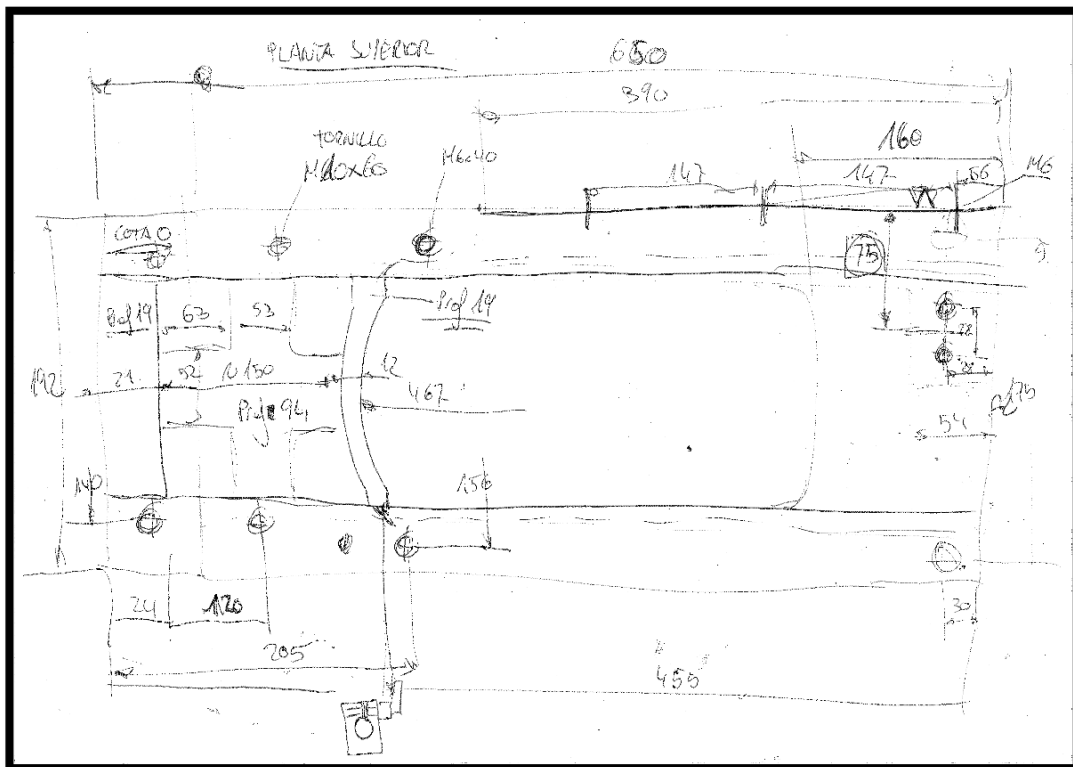 PLANTA SUPERIOR
650
390
160
TORNILLO
M10x60
M6x40
147
147
56
M6
COTA 0
75
Prof 19
63
53
Prof 19
28
192
21
52
150
12
467
Prof 94
54
140
156
24
120
30
205
455